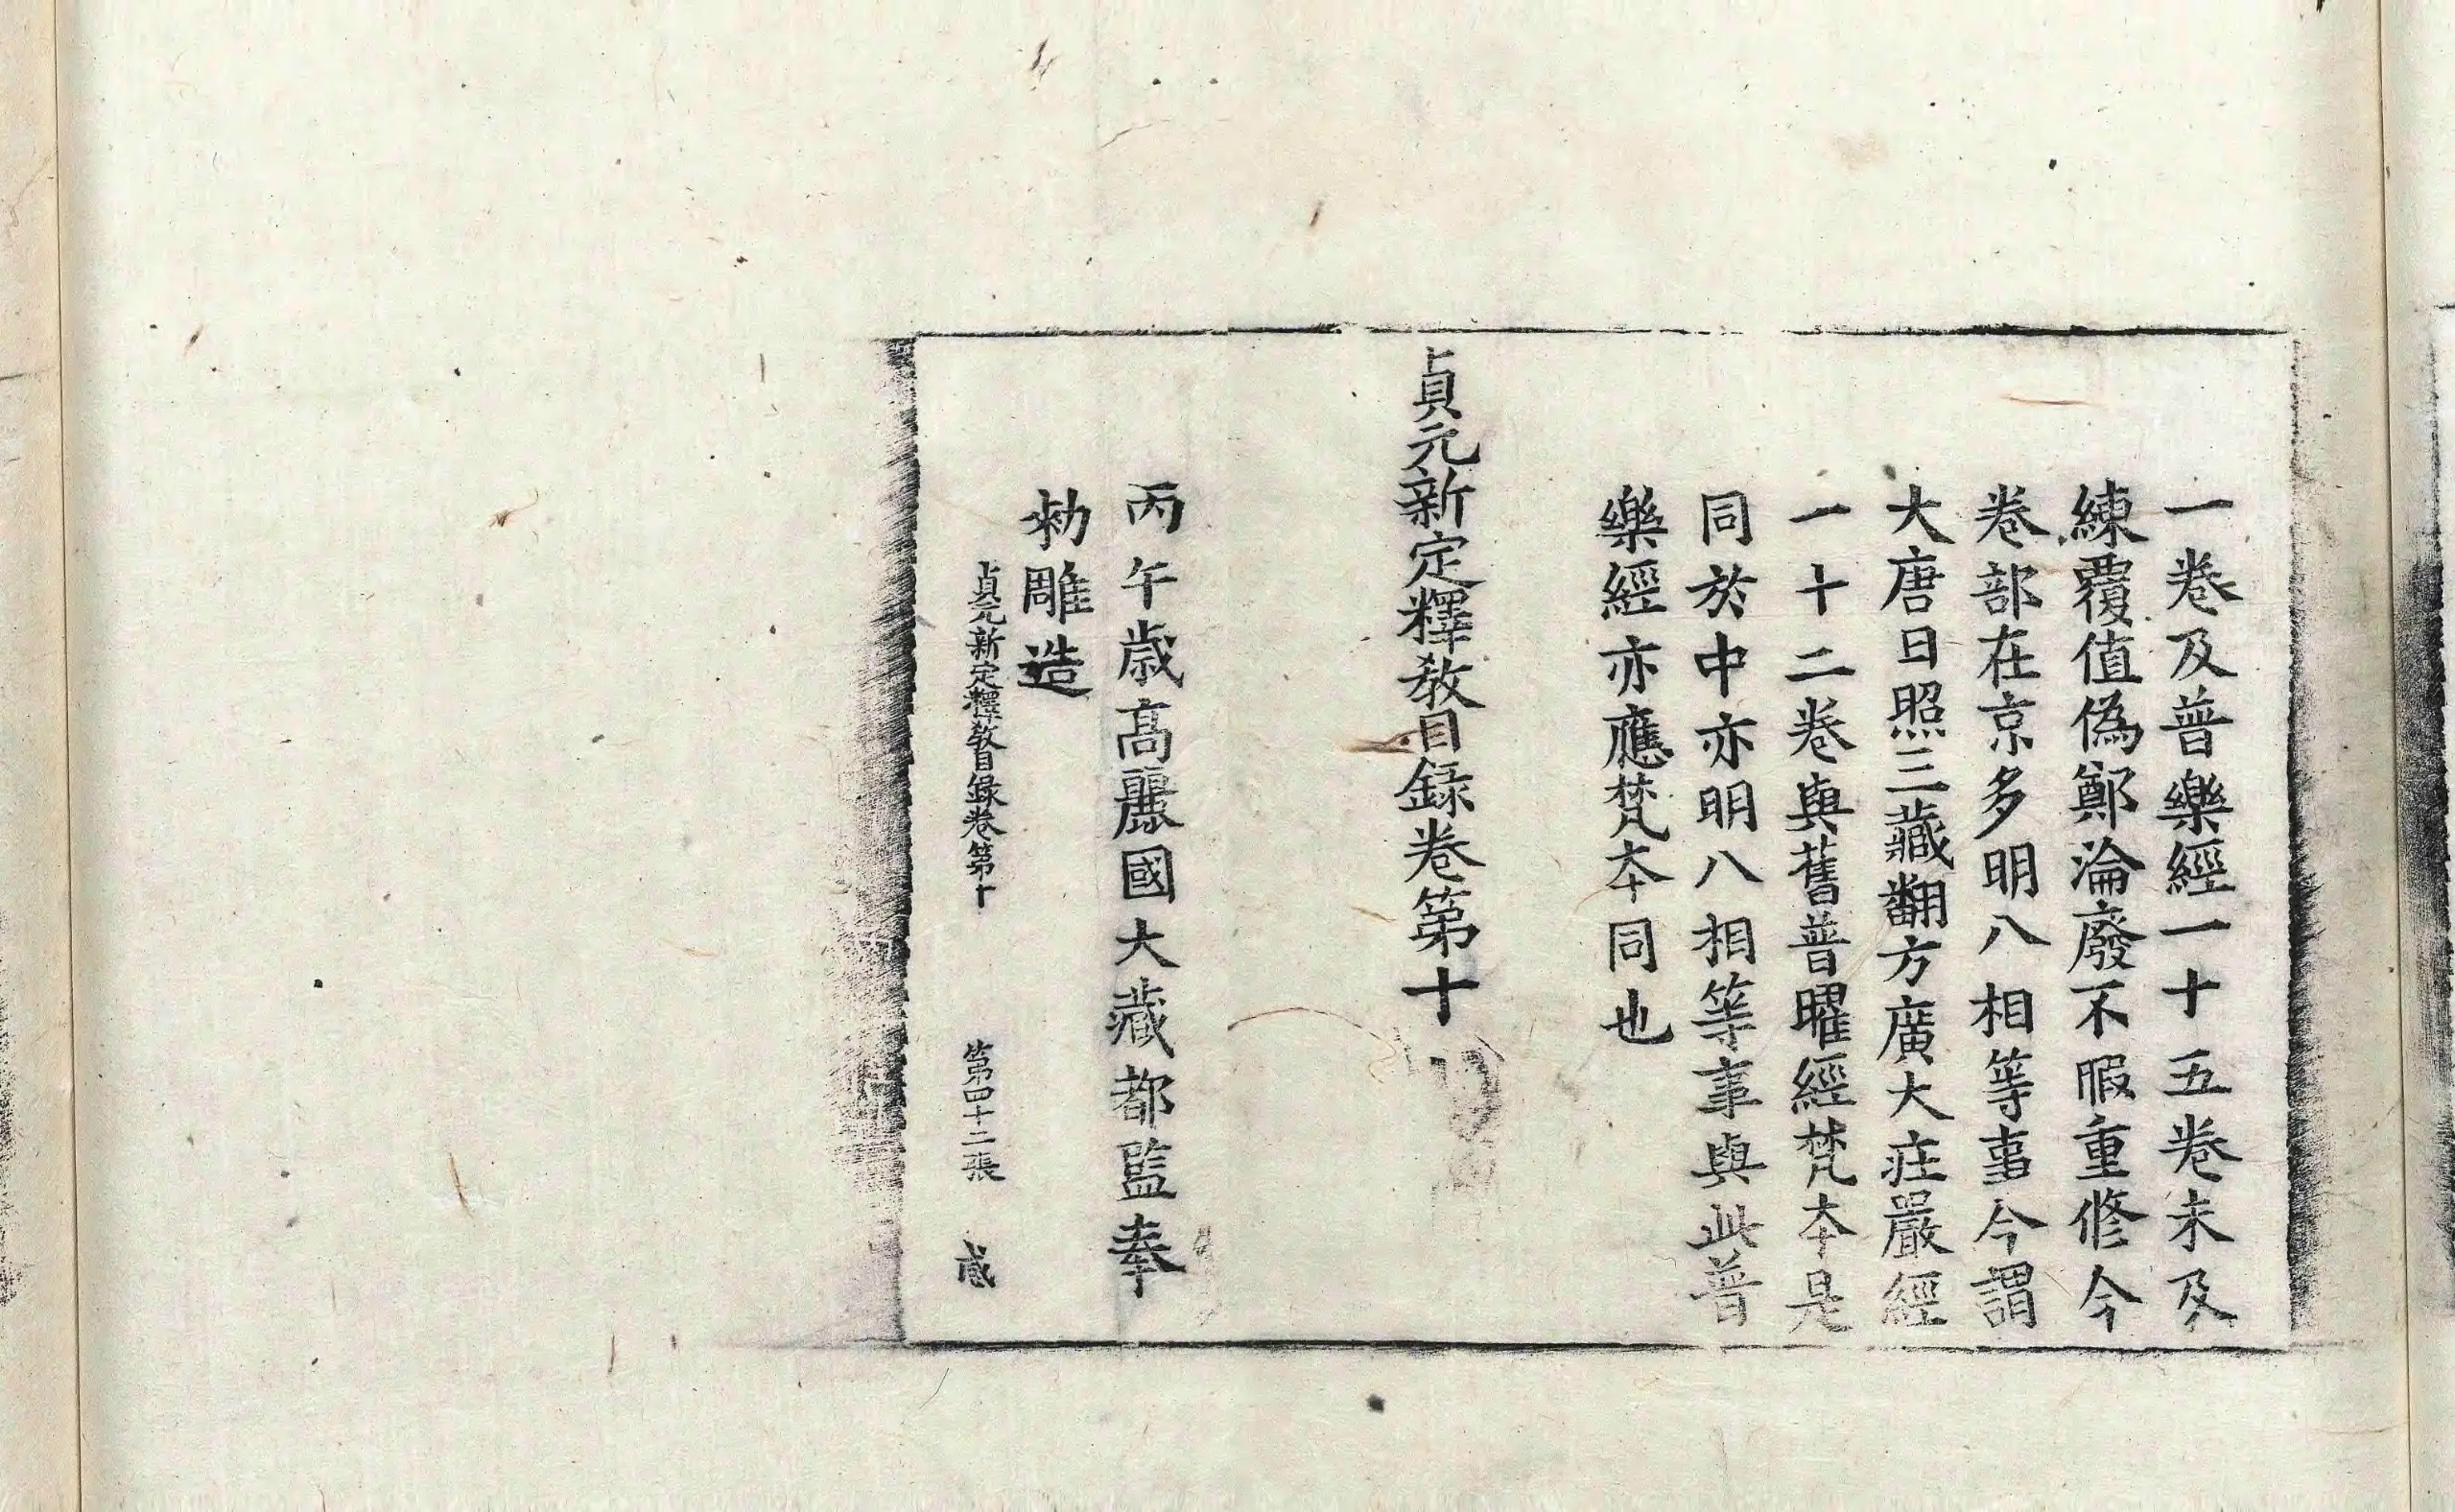 一卷及普樂經一十五卷未及
練覆值偽鄭淪廢不暇重修今
卷部在京多明八相等事今謂
大唐日照三藏翻方廣大莊嚴經
一十二卷與舊普曜經梵本是
同於中亦明八相等事與此普
樂經亦應梵本同也
貞元新定釋教目錄卷第十
丙午歲高麗國大藏都監奉
勑雕造
貞元新定釋教目錄卷第十 第四十二張